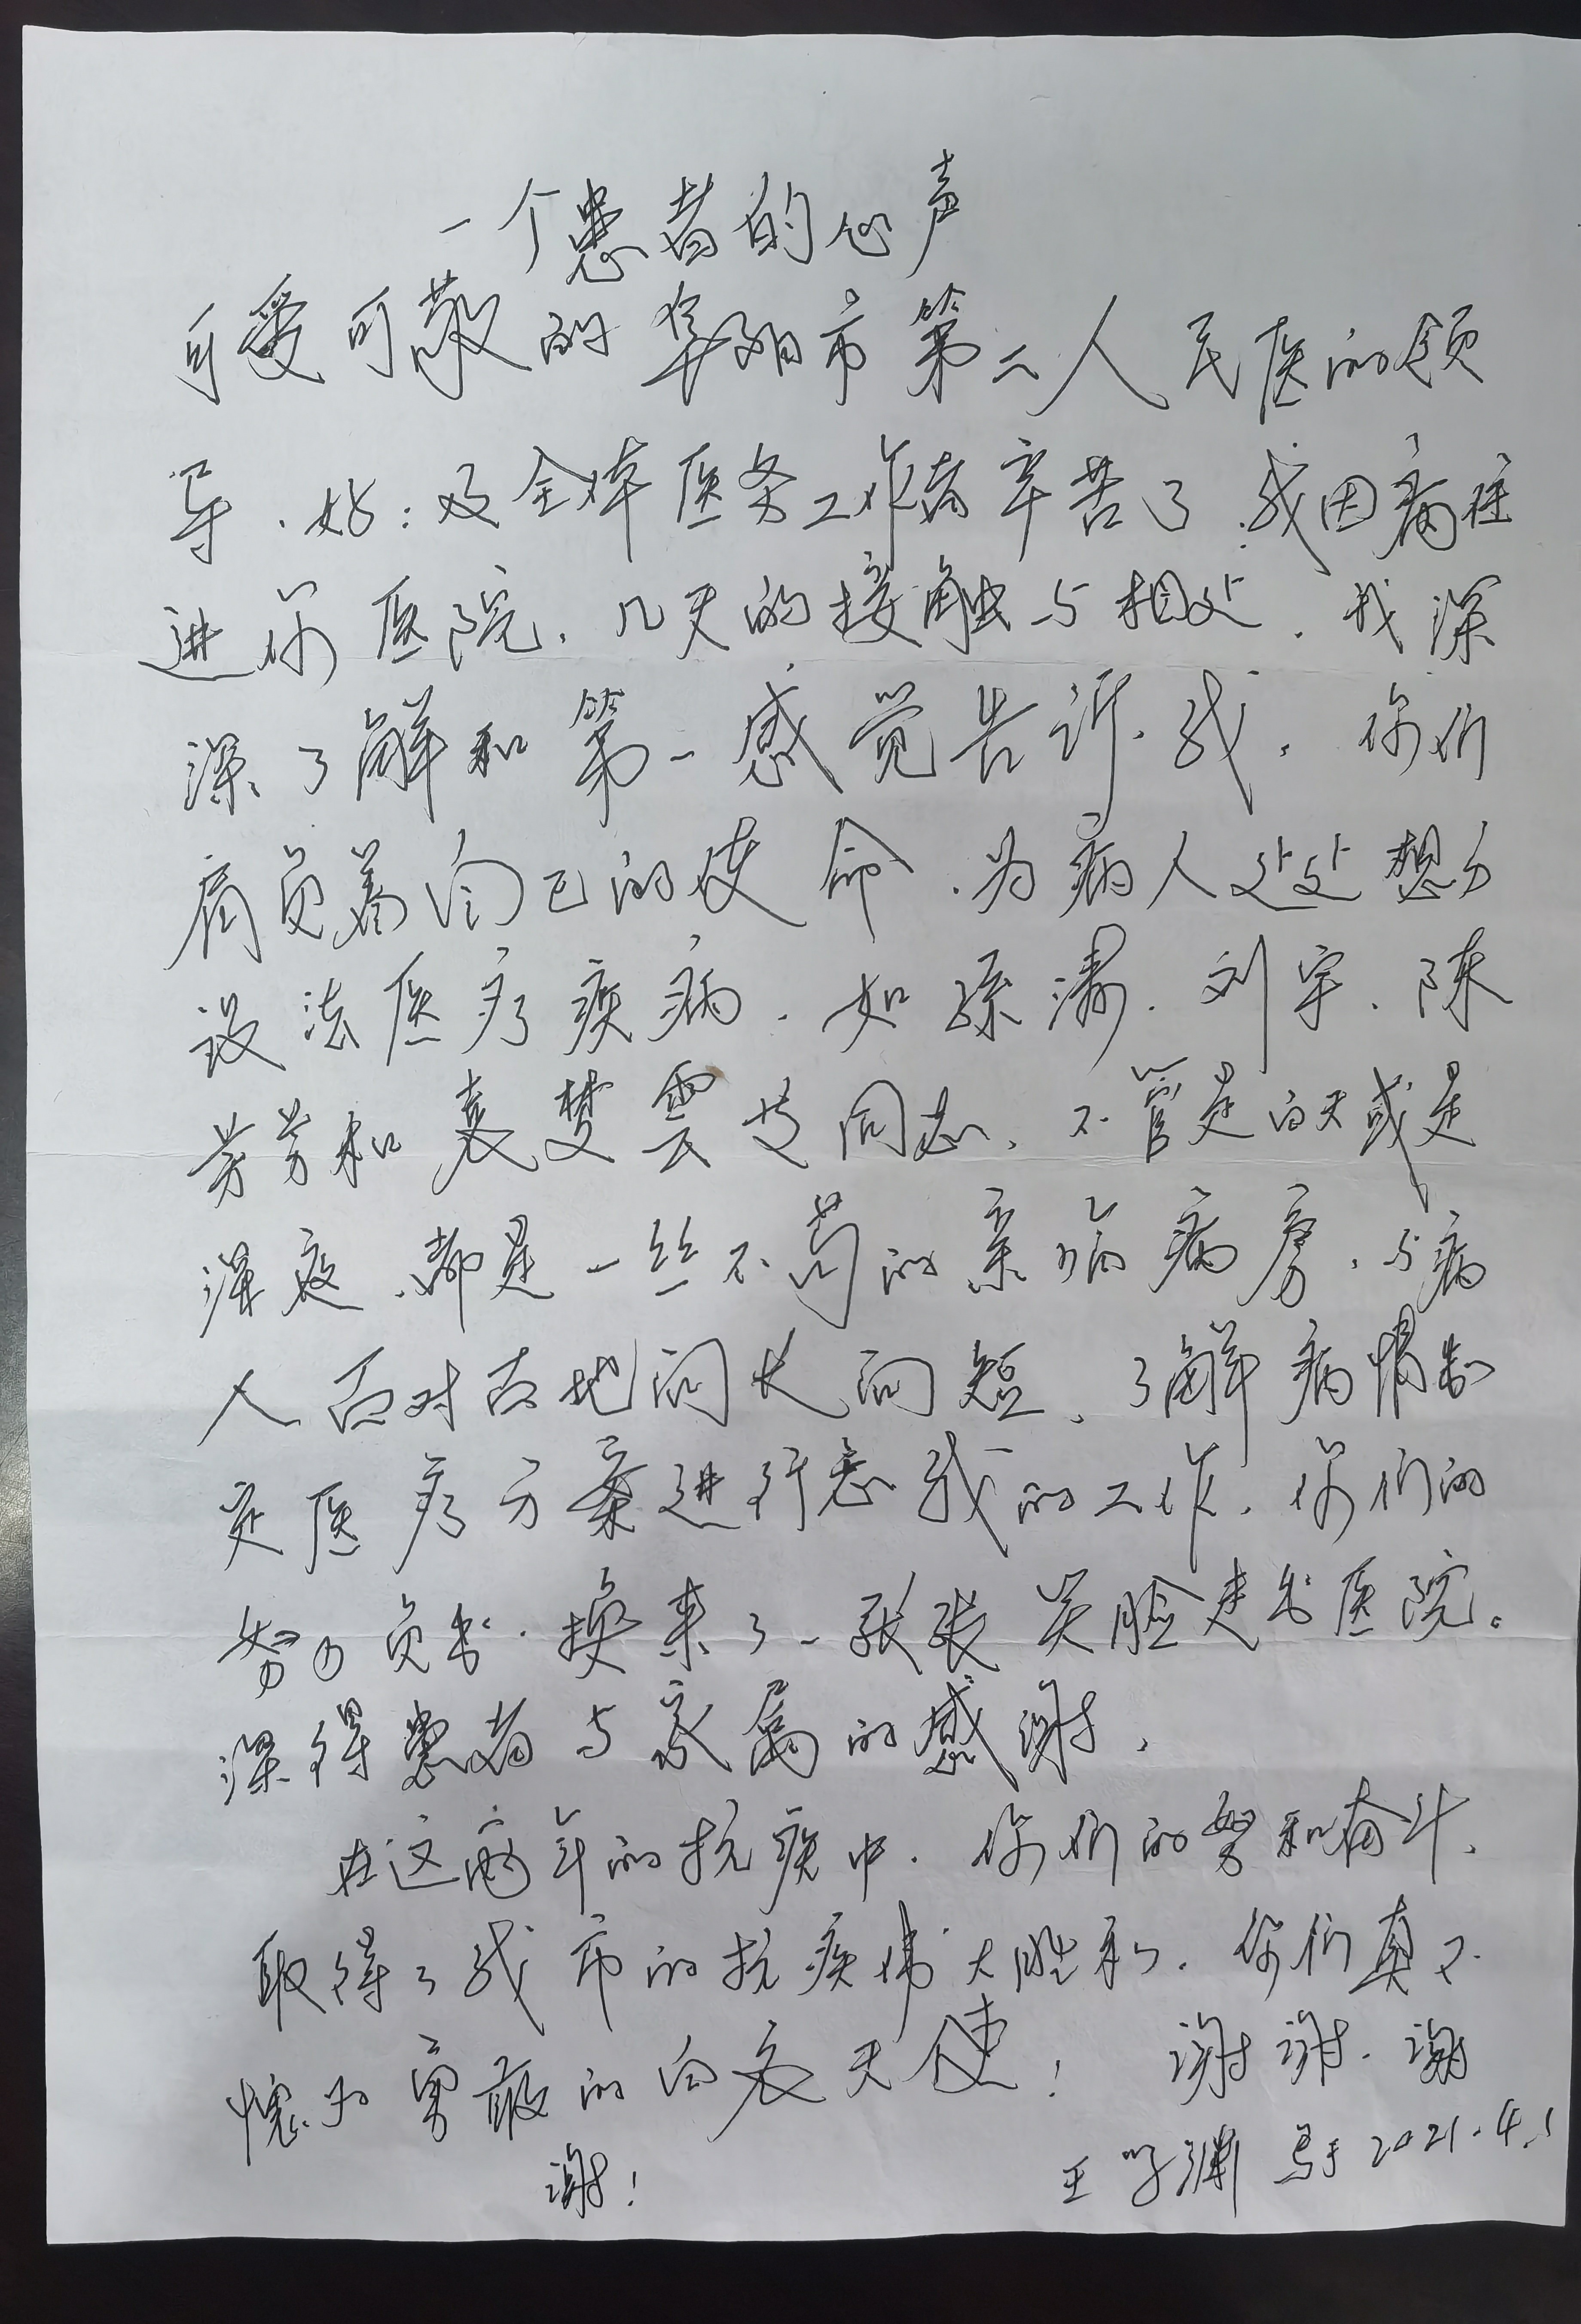 一个患者的心声
可爱可敬的阜阳市第二人民医的领
导.好:及全体医务工作者辛苦了.我因病住
进你医院.几天的接触与相处.我深
深了解和第一感觉告诉我.你们
肩负着自己的使命.为病人处处想方
设法医疗疾病.如孙潇.刘宇.陈
芳芳和袁楚云等同志.不管是白天或是
深夜.都是一丝不苟的亲临病房.与病
人面对面地问长问短.了解病情制
定医疗方案进行忘我的工作.你们的
努力负出.换来了一张张笑脸走出医院。
深得患者与家属的感谢.
在这两年的抗疫中.你们的努和奋斗.
取得了我市的抗疫伟大胜利.你们真不
愧为勇敢的白衣天使!谢谢.谢
谢!
王学渊 写于2021.4.1